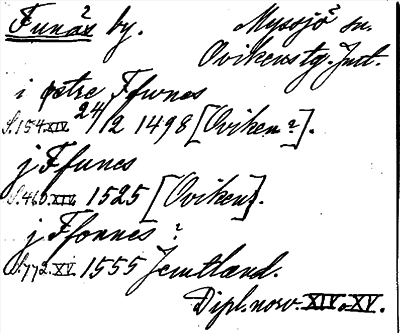 Funäs by. Myssjö sn.
Ovikens tg. Jmt.
i østre Ffwnes
S. 154 XIV 24/2 1498 [Oviken?].
j Ffunes
S. 460. XIV. 1525 [Oviken].
j Ffonnes ?
S. 772. XV. 1555 Jemtland.
Dipl. norv. XIV o XV.